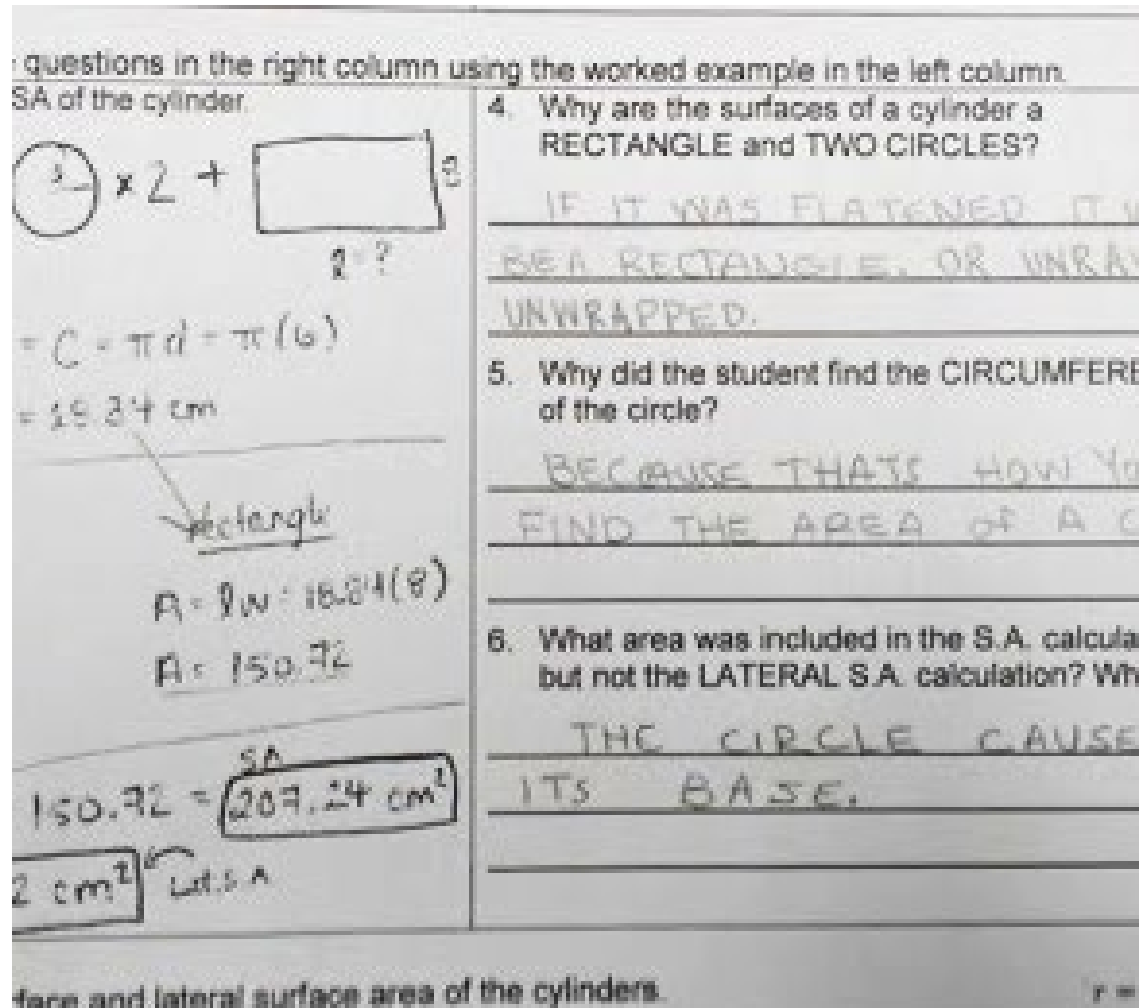 questions in the right column using the worked example in the left column.
SA of the cylinder.
3 x 2 +
l = ?
= C = πd = π(6)
= 18.84 cm
rectangle
A = lw = 18.84(8)
A = 150.72
SA
150.72 = 207.24 cm²
2 cm² Lat. S.A
4. Why are the surfaces of a cylinder a
RECTANGLE and TWO CIRCLES?
IF IT WAS FLATENED IT
BE A RECTANGLE. OR
UNWRAPPED.
5. Why did the student find the CIRCUMFERE
of the circle?
BECAUSE THATS HOW YO
FIND THE AREA OF A C
6. What area was included in the S.A. calcula
but not the LATERAL S.A. calculation? Wh
THE CIRCLE CAUSE
ITS BASE.
face and lateral surface area of the cylinders.
r =